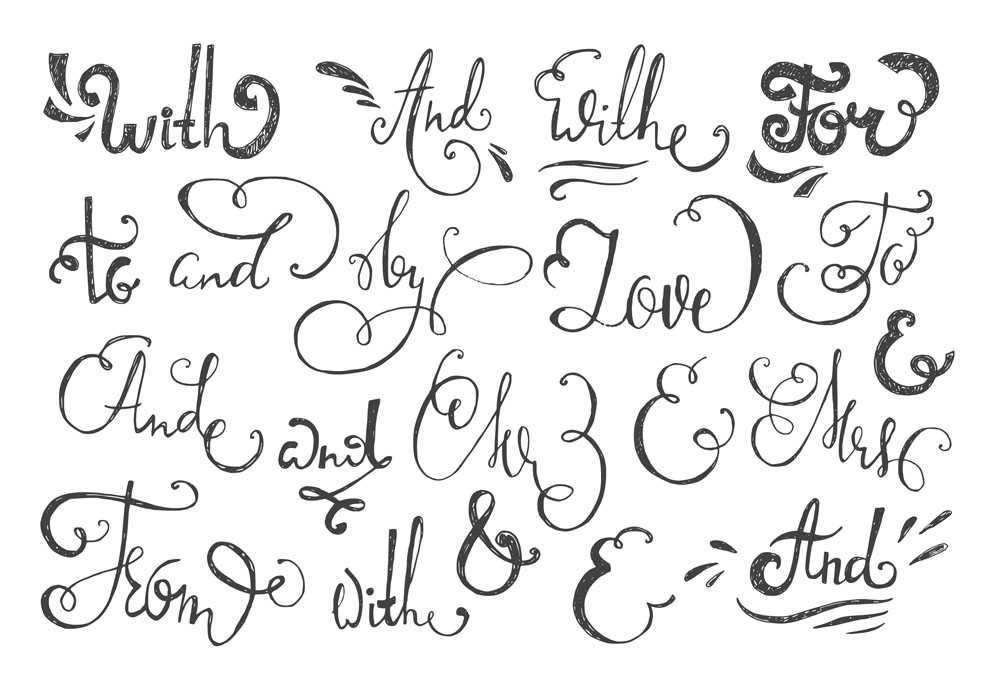 With And Withe For
to and by Love To
&
Ande and Mr & Mrs
From Withe & & And